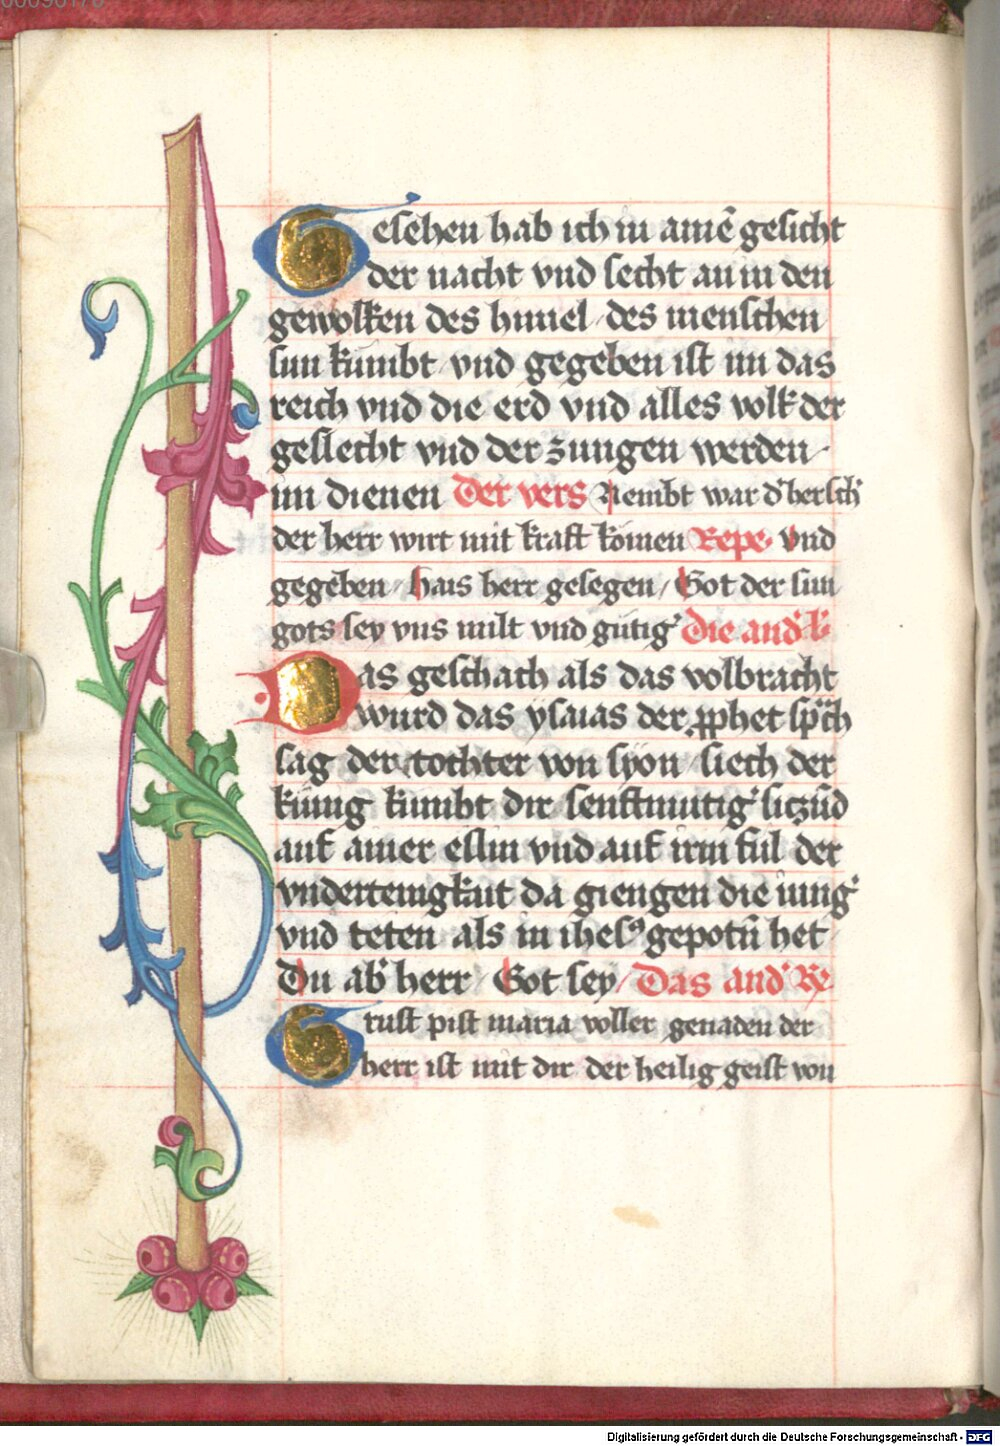 Gesehen hab ich in ainē gesicht
der nacht vnd secht an in den
gewolken des himel / des menschen
sun kumbt / vnd gegeben ist im das
reich vnd die erd vnd alles volk der
geslecht vnd der zungen werden /
im dienen Der vers Nembt war d' hersch'
der herr wirt mit kraft kömen Repe. Vnd
gegeben / Hais herr gesegen / Got der sun
gots sey vns milt vnd gütig' Die and' l'
Das geschach als das volbracht
wurd das ysaias der pphet sp'ch
sag der tochter von syon / siech der
künig kumbt dir senftmutig' siczūd
auf ainer eslin vnd auf irm ful der
vndertenigkait da giengen die iung'
vnd teten als in ihes' gepotn het /
Du ab' herr / Got sey / Das and' Re
Grust pist maria voller genaden der
herr ist mit dir der heilig geist von
Digitalisierung gefördert durch die Deutsche Forschungsgemeinschaft - DFG